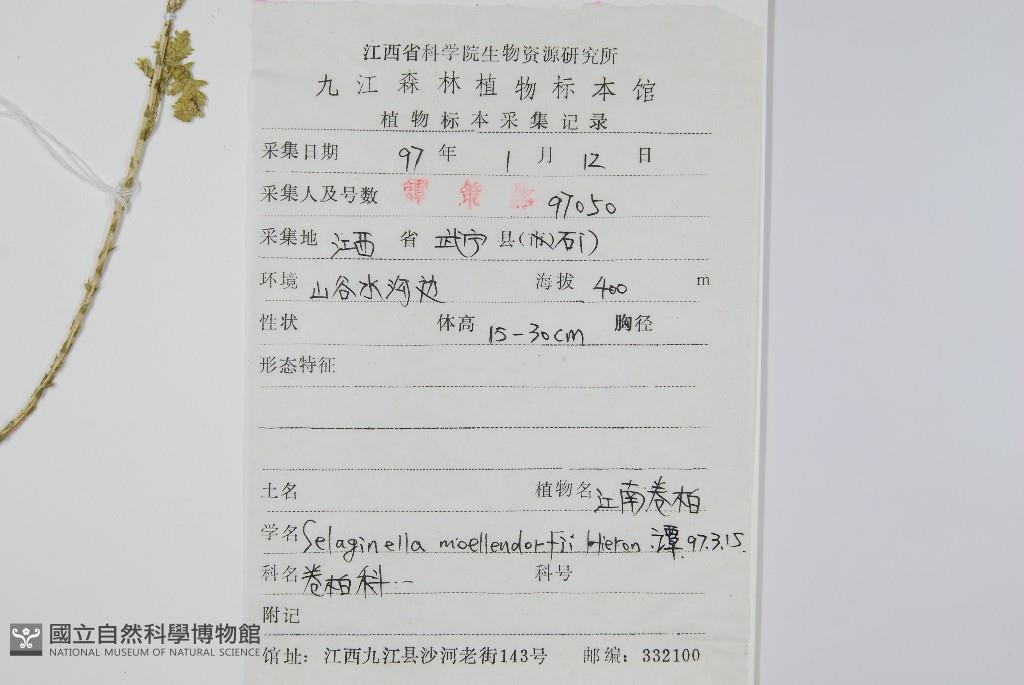 江西省科学院生物资源研究所
九江森林植物标本馆
植物标本采集记录
采集日期 97 年 1 月 12 日
采集人及号数 譚策 97050
采集地 江西 省 武宁 县(市)石门
环境 山谷水沟边 海拔 400 m
性状 体高 15-30cm 胸径
形态特征
土名 植物名 江南卷柏
学名 Selaginella moellendorfii Hieron 潭 97.3.15.
科名 卷柏科 科号
附记
馆址：江西九江县沙河老街143号 邮编：332100
國立自然科學博物館
NATIONAL MUSEUM OF NATURAL SCIENCE